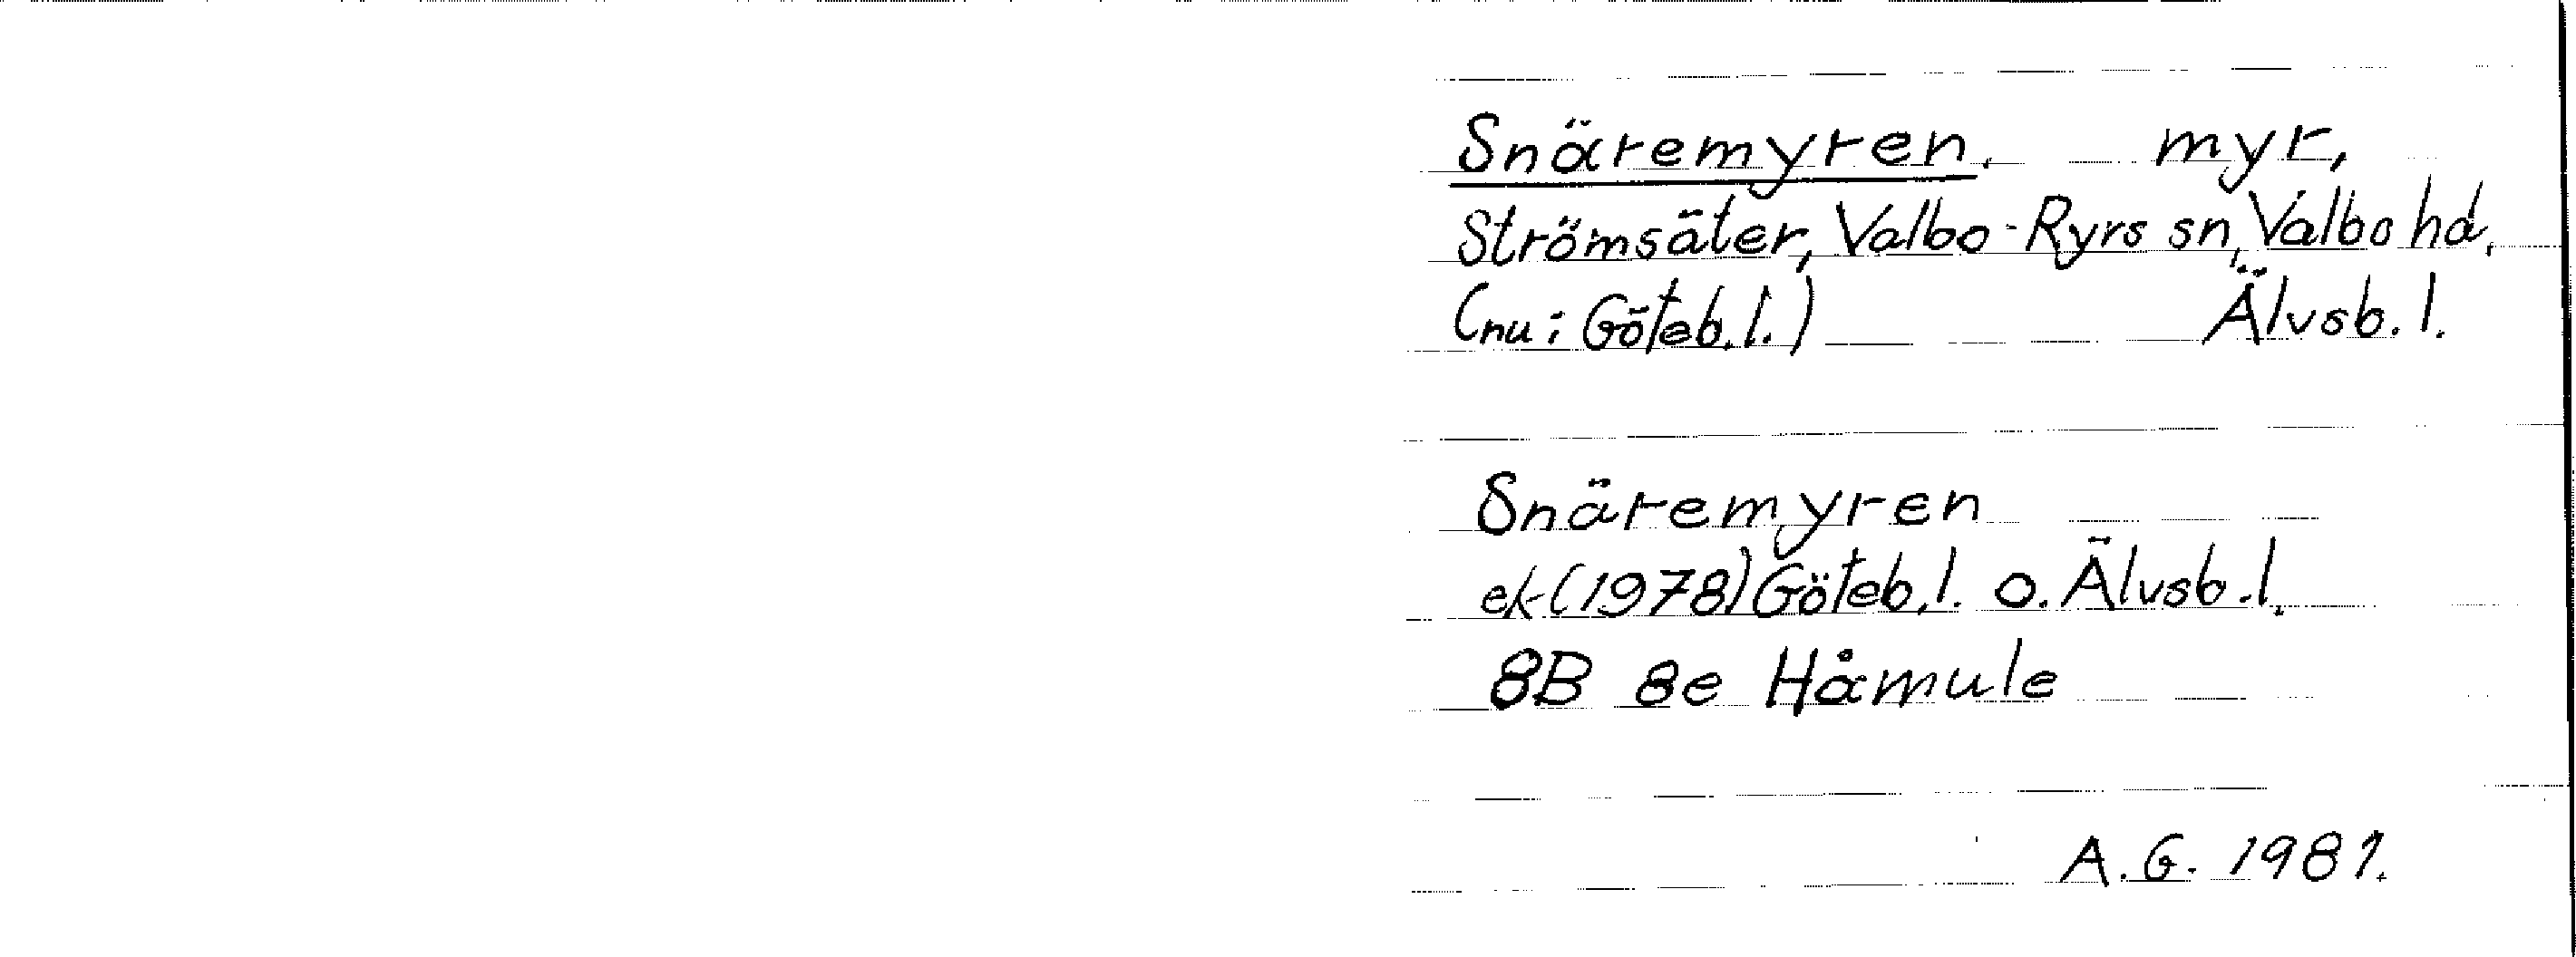 Snäremyren, myr,
Strömsäter, Valbo-Ryrs sn, Valbo hd,
(nu i Göteb. l.) Älvsb. l.
Snäremyren
ek (1978) Göteb. l. o. Älvsb. l.
8B 8e Håmule
A.G. 1981.